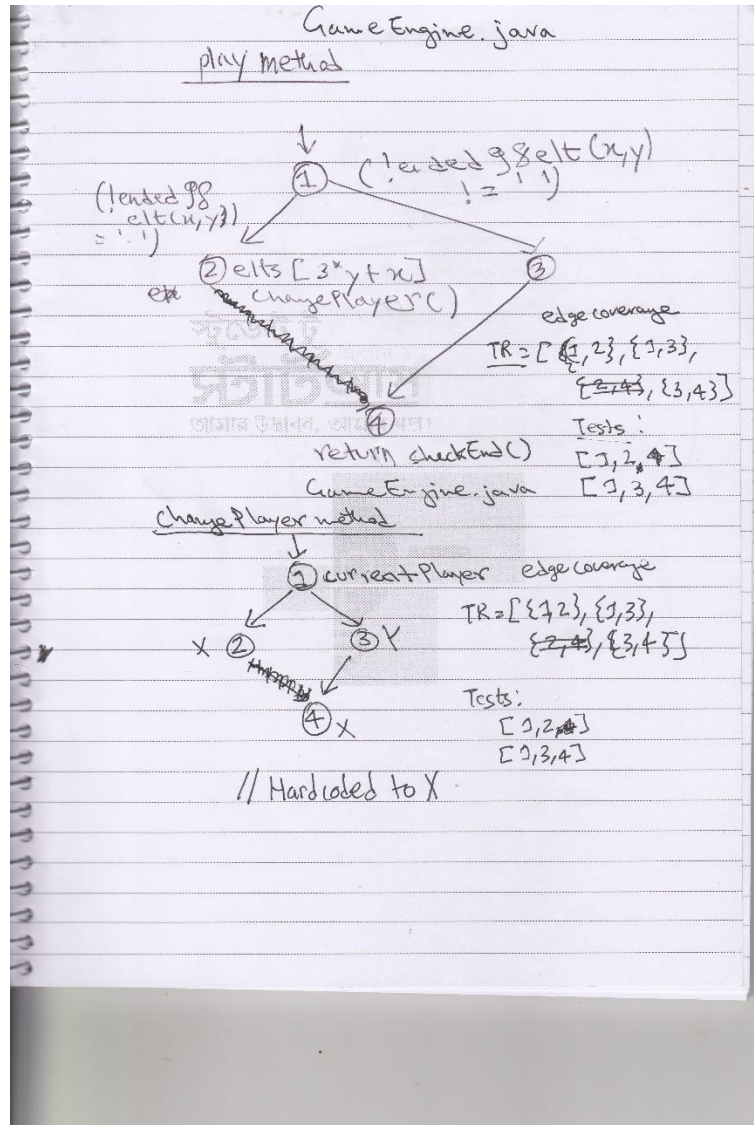 GameEngine.java
play method
1
(!ended && elt(x,y)
!= ' ')
(!ended &&
elt(x,y))
= ' ')
2 elts[3*y+x]
changePlayer()
3
edge coverage
TR = [{1,2}, {1,3},
{2,4}, {3,4}]
4
return checkEnd()
Tests:
[1,2,4]
[1,3,4]
GameEngine.java
changePlayer method
1 currentPlayer
edge coverage
TR=[{1,2}, {1,3},
{2,4}, {3,4}]
X 2
3 Y
4 X
Tests:
[1,2,4]
[1,3,4]
// Hardcoded to X
স্টুডেন্ট টু
স্টার্টআপ
আমার উদ্ভাবন,